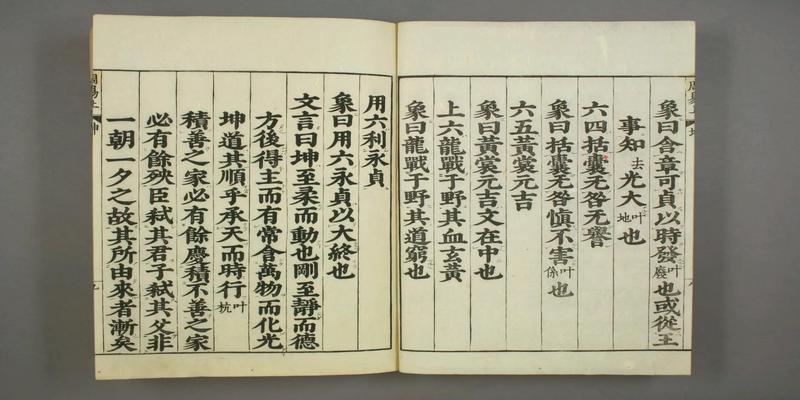 象曰含章可貞以時發叶廢也或從王
事知去光大叶地也
六四括囊无咎无譽
象曰括囊无咎慎不害叶係也
六五黃裳元吉
象曰黃裳元吉文在中也
上六龍戰于野其血玄黃
象曰龍戰于野其道窮也
用六利永貞
象曰用六永貞以大終也
文言曰坤至柔而動也剛至靜而德
方後得主而有常含萬物而化光
坤道其順乎承天而時行叶杭
積善之家必有餘慶積不善之家
必有餘殃臣弒其君子弒其父非
一朝一夕之故其所由來者漸矣
周易上
坤